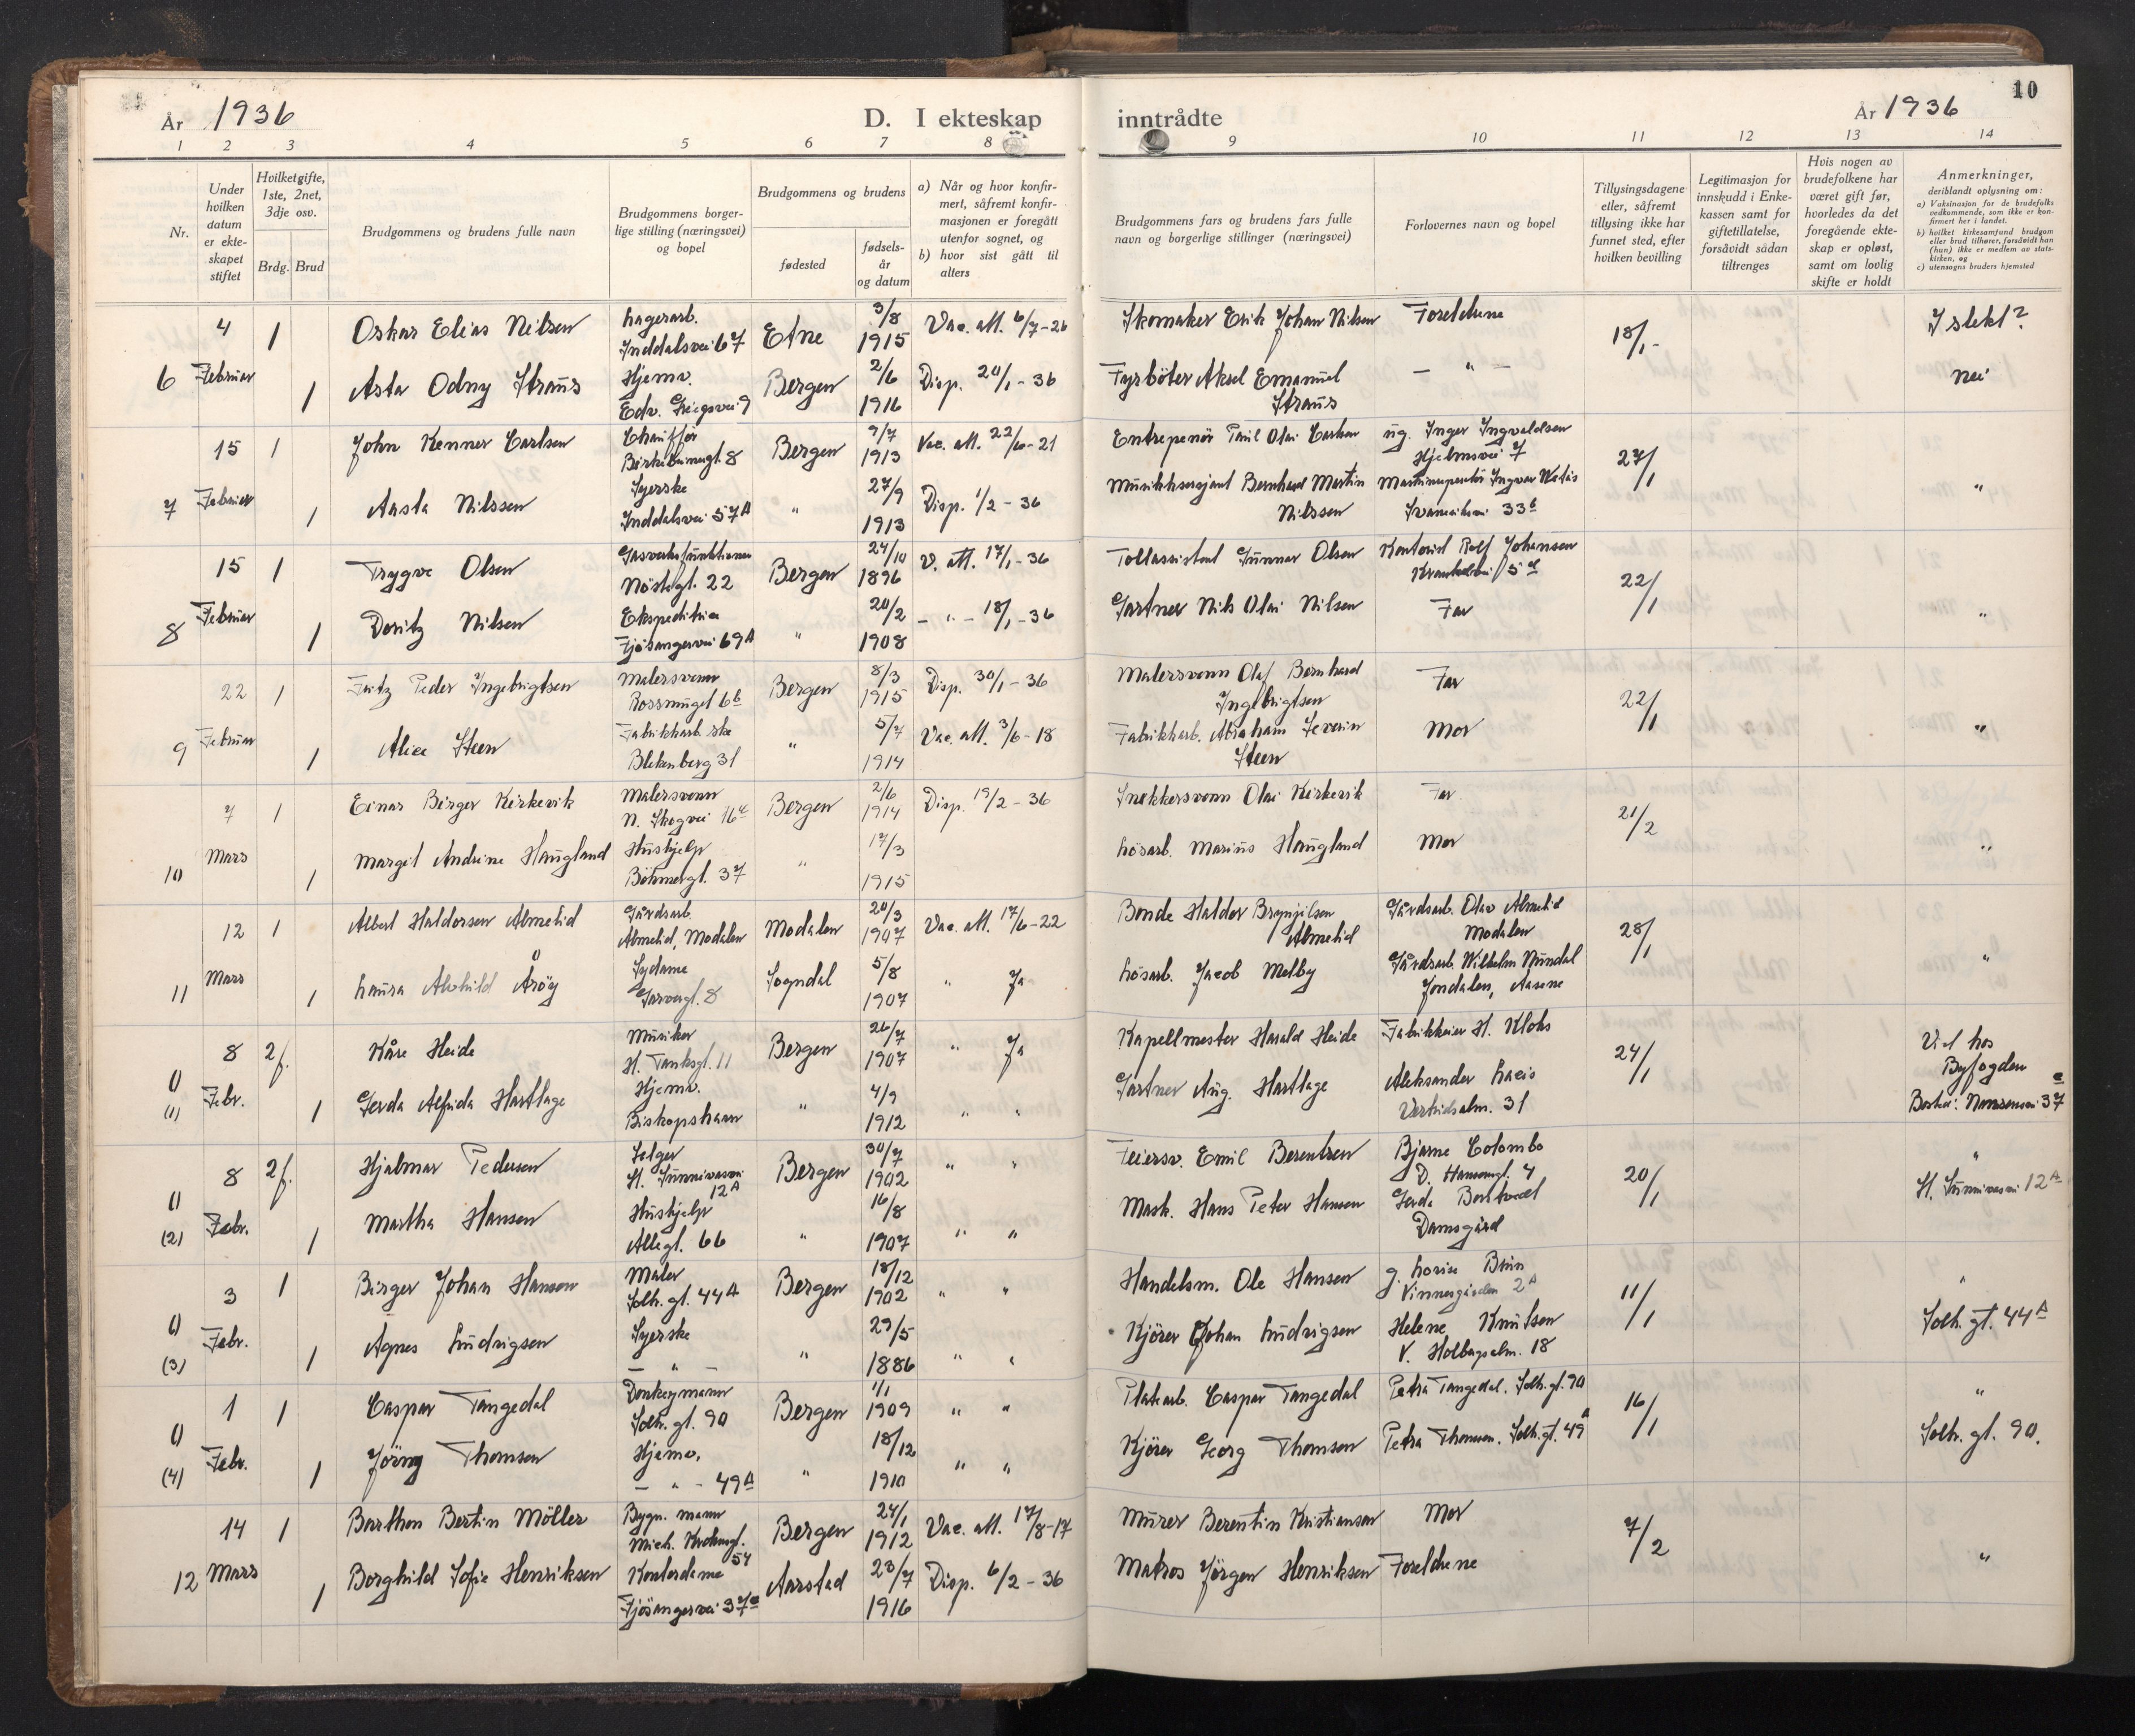 År 1936 D. I ekteskap inntrådte År 1936 10
1 2 3 4 5 6 7 8 9 10 11 12 13 14
Nr.
Under hvilken datum er ekteskapet stiftet
Hvilket gifte, 1ste, 2net, 3dje osv.
Brdg. Brud
Brudgommens og brudens fulle navn
Brudgommens borgerlige stilling (næringsvei) og bopel
Brudgommens og brudens
fødested
fødselsår og datum
a) Når og hvor konfirmert, såfremt konfirmasjonen er foregått utenfor sognet, og
b) hvor sist gått til alters
Brudgommens fars og brudens fars fulle navn og borgerlige stillinger (næringsvei)
Forlovernes navn og bopel
Tillysingsdagene eller, såfremt tillysing ikke har funnet sted, efter hvilken bevilling
Legitimasjon for innskudd i Enkekassen samt for giftetillatelse, forsåvidt sådan tiltrenges
Hvis nogen av brudefolkene har været gift før, hvorledes da det foregående ekteskap er opløst, samt om lovlig skifte er holdt
Anmerkninger,
deriblandt oplysning om:
a) Vaksinasjon for de brudefolks vedkommende, som ikke er konfirmert her i landet.
b) hvilket kirkesamfund brudgom eller brud tilhører, forsåvidt han (hun) ikke er medlem av statskirken, og
c) utensogns bruders hjemsted
6 4 Februar 1 Oskar Elias Nilsen Lagerarb. Inddalsvei 67 Etne 3/8 1915 Vac. att. 6/7-26 Skomaker Erik Johan Nilsen Foreldrene 18/1 I slekt?
1 Asta Odny Straus Hjemv. Edv. Griegsvei 9 Bergen 2/6 1916 Disp. 20/1-36 Fyrböter Aksel Emanuel Straus - " - nei
7 15 Februar 1 John Kenner Carlsen Chauffør Birkebeinergt. 8 Bergen 9/7 1913 Vac. att. 22/6-21 Entrepenör Paul Olai Carlsen ug. Inger Ingvaldsen Hjelmsvei 7 27/1
1 Aasta Nilssen Syerske Inddalsvei 57A " 27/9 1913 Disp. 1/2-36 Musikksersjant Bernhard Martin Nilssen "
8 15 Februar 1 Trygve Olsen Gasverksfunktionær Nöstegt. 22 Bergen 24/10 1896 V. att. 17/1-36 Tollassistent Gunnar Olsen Kontorist Rolf Johansen 22/1
1 Doritz Nilsen Ekspeditrise Fjösangervei 69A " 20/2 1908 - " - 18/1-36 Gartner Nils Olai Nilsen Far "
9 22 Februar 1 Fritz Peder Ingebrigtsen Malersvenn Rosesmuget 6b Bergen 8/3 1915 Disp. 30/1-36 Malersvenn Olaf Bernhard Ingebrigtsen Far 22/1
1 Alice Steen Fabrikkarb.ske Blekenberg 31 " 5/7 1914 Vac. att. 3/6-18 Fabrikkarb. Abraham Severin Steen Mor "
10 7 Mars 1 Einar Birger Kirkevik Malersvenn N. Skogvei 16c Bergen 2/6 1914 Disp. 19/2-36 Snekkersvenn Olai Kirkevik Far 21/2
1 Margit Andrine Haugland Hushjelp Böhmergt. 37 " 17/3 1915 Lösarb. Marius Haugland Mor "
11 12 Mars 1 Albert Haldorsen Almelid Gårdsarb. Almelid, Modalen Modalen 20/3 1907 Vac. att. 17/6-22 Bonde Haldor Brynjilsen Almelid Gårdsarb. Olav Almelid Modalen 28/1
1 Laura Alvhild Åröy Sydame Garvergt. 8 Sogndal 5/8 1907 " Ja Lösarb. Jacob Melby Gårdsarb. Wilhelm Nundal Jondalen, Aasene "
1) (1) 8 Febr. 2 f. Kåre Heide Musiker H. Tanksgt. 11 Bergen 26/7 1907 " Ja Kapellmester Harald Heide Fabrikkeier H. Klohs 24/1 Viet hos Byfogden
1 Gerda Alfrida Hartlage Hjemv. Biskopshavn " 4/9 1912 " " Gartner Aug. Hartlage Aleksander Lacis Vestreidsalm. 31 Bosted: Nonnesvei 37e
1) (2) 8 Febr. 2 f. Hjalmar Pedersen Selger St. Sunnivasvei 12A Bergen 30/7 1902 " " Feiersv. Emil Berentsen Bjarne Colombo D. Hansensgt. 4 20/1 "
1 Martha Hansen Hushjelp Allégt. 66 " 16/8 1907 " " Mask. Hans Peter Hansen Gerda Damsgård St. Sunnivasvei 12A
1) (3) 3 Febr. 1 Birger Johan Hansen Maler Solh. gt. 44A Bergen 18/12 1902 " " Handelsm. Ole Hansen g. Lovise Vinnesgården 2A 11/1 "
1 Agnes Ludvigsen Syerske - " - " 29/5 1886 " " Kjörer Johan Ludvigsen Helene Knutsen V. Holbergsalm. 18 Solh. gt. 44A
1) (4) 1 Febr. 1 Caspar Tangedal Donkeymann Solh. gt. 90 Bergen 1/1 1909 " " Platearb. Caspar Tangedal Petra Tangedal. Solh. gt. 90 16/1 "
1 Jörny Thomsen Hjemv. - " - 49A " 18/12 1910 " " Kjörer Georg Thomsen Petra Thomsen. Solh. gt. 49A Solh. gt. 90.
12 14 Mars 1 Barthon Bertin Möller Bygn. mann Mich. Krohnsgt. 54 Bergen 24/1 1912 Vac. att. 17/8-17 Murer Berentin Kristiansen Mor 7/2
1 Borghild Sofie Henriksen Kontordame Fjösangervei 37e Aarstad 23/7 1916 Disp. 6/2-36 Matros Jörgen Henriksen Foreldrene "